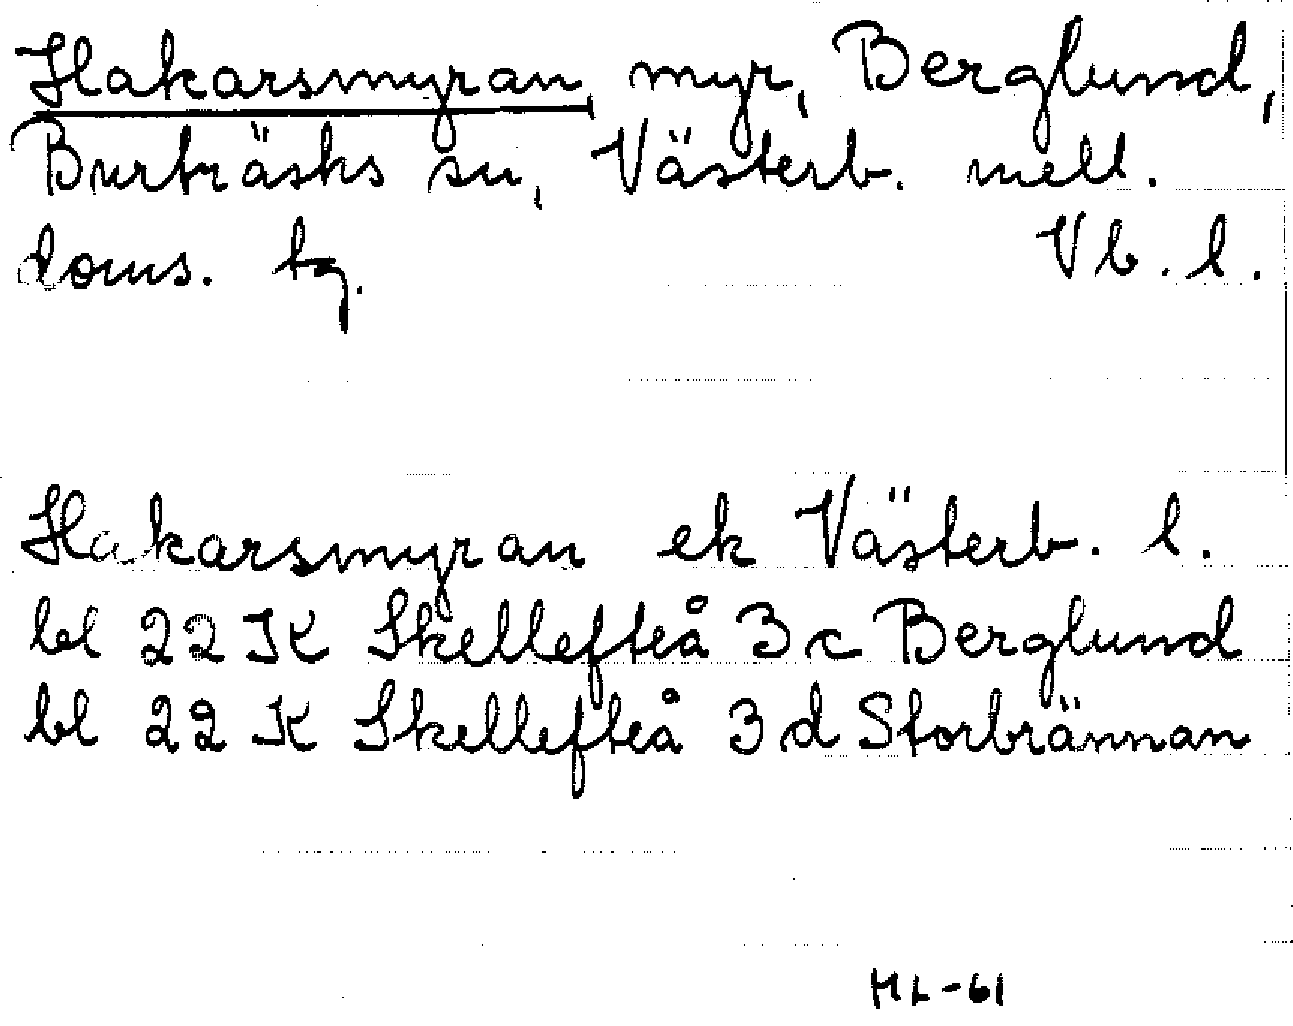 Hakarsmyran, myr, Berglund,
Burträsks sn, Västerb. mell.
doms. tg. Vb. l.
Hakarsmyran ek Västerb. l.
bl 22 K Skellefteå 3 c Berglund
bl 22 K Skellefteå 3 d Storbrännan
HL-61